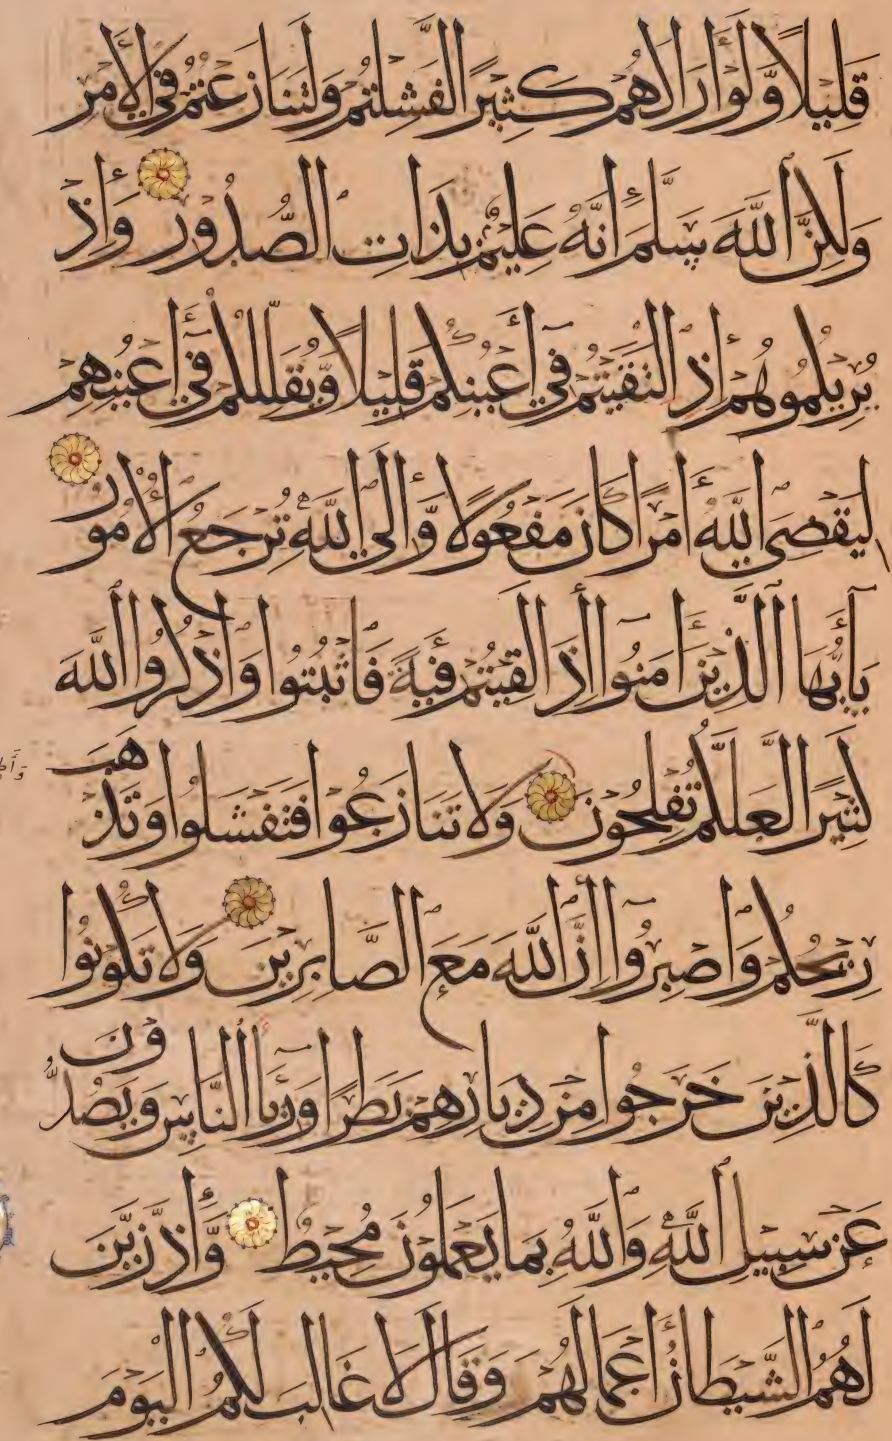 قَلِيلًا وَّلَوْ أَرَاكَهُمْ كَثِيرًا لَّفَشِلْتُمْ وَلَتَنَازَعْتُمْ فِي الْأَمْرِ
وَلَكِنَّ اللَّهَ سَلَّمَ إِنَّهُ عَلِيمٌ بِذَاتِ الصُّدُورِ وَإِذْ
يُرِيكُمُوهُمْ إِذِ الْتَقَيْتُمْ فِي أَعْيُنِكُمْ قَلِيلًا وَّيُقَلِّلُكُمْ فِي أَعْيُنِهِمْ
لِيَقْضِيَ اللَّهُ أَمْرًا كَانَ مَفْعُولًا وَّإِلَى اللَّهِ تُرْجَعُ الْأُمُورُ
يَأَيُّهَا الَّذِينَ آمَنُوا إِذَا لَقِيتُمْ فِئَةً فَاثْبُتُوا وَاذْكُرُوا اللَّهَ
كَثِيرًا لَّعَلَّكُمْ تُفْلِحُونَ وَلَا تَنَازَعُوا فَتَفْشَلُوا وَتَذْهَبَ
رِيحُكُمْ وَاصْبِرُوا إِنَّ اللَّهَ مَعَ الصَّابِرِينَ وَلَا تَكُونُوا
كَالَّذِينَ خَرَجُوا مِنْ دِيَارِهِمْ بَطَرًا وَّرِئَاءَ النَّاسِ وَيَصُدُّونَ
عَنْ سَبِيلِ اللَّهِ وَاللَّهُ بِمَا يَعْمَلُونَ مُحِيطٌ وَّإِذْ زَيَّنَ
لَهُمُ الشَّيْطَانُ أَعْمَالَهُمْ وَقَالَ لَا غَالِبَ لَكُمُ الْيَوْمَ